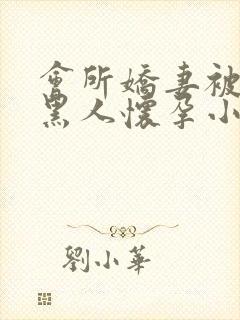 會所嬌妻被
黑人懷孕小
劉小華